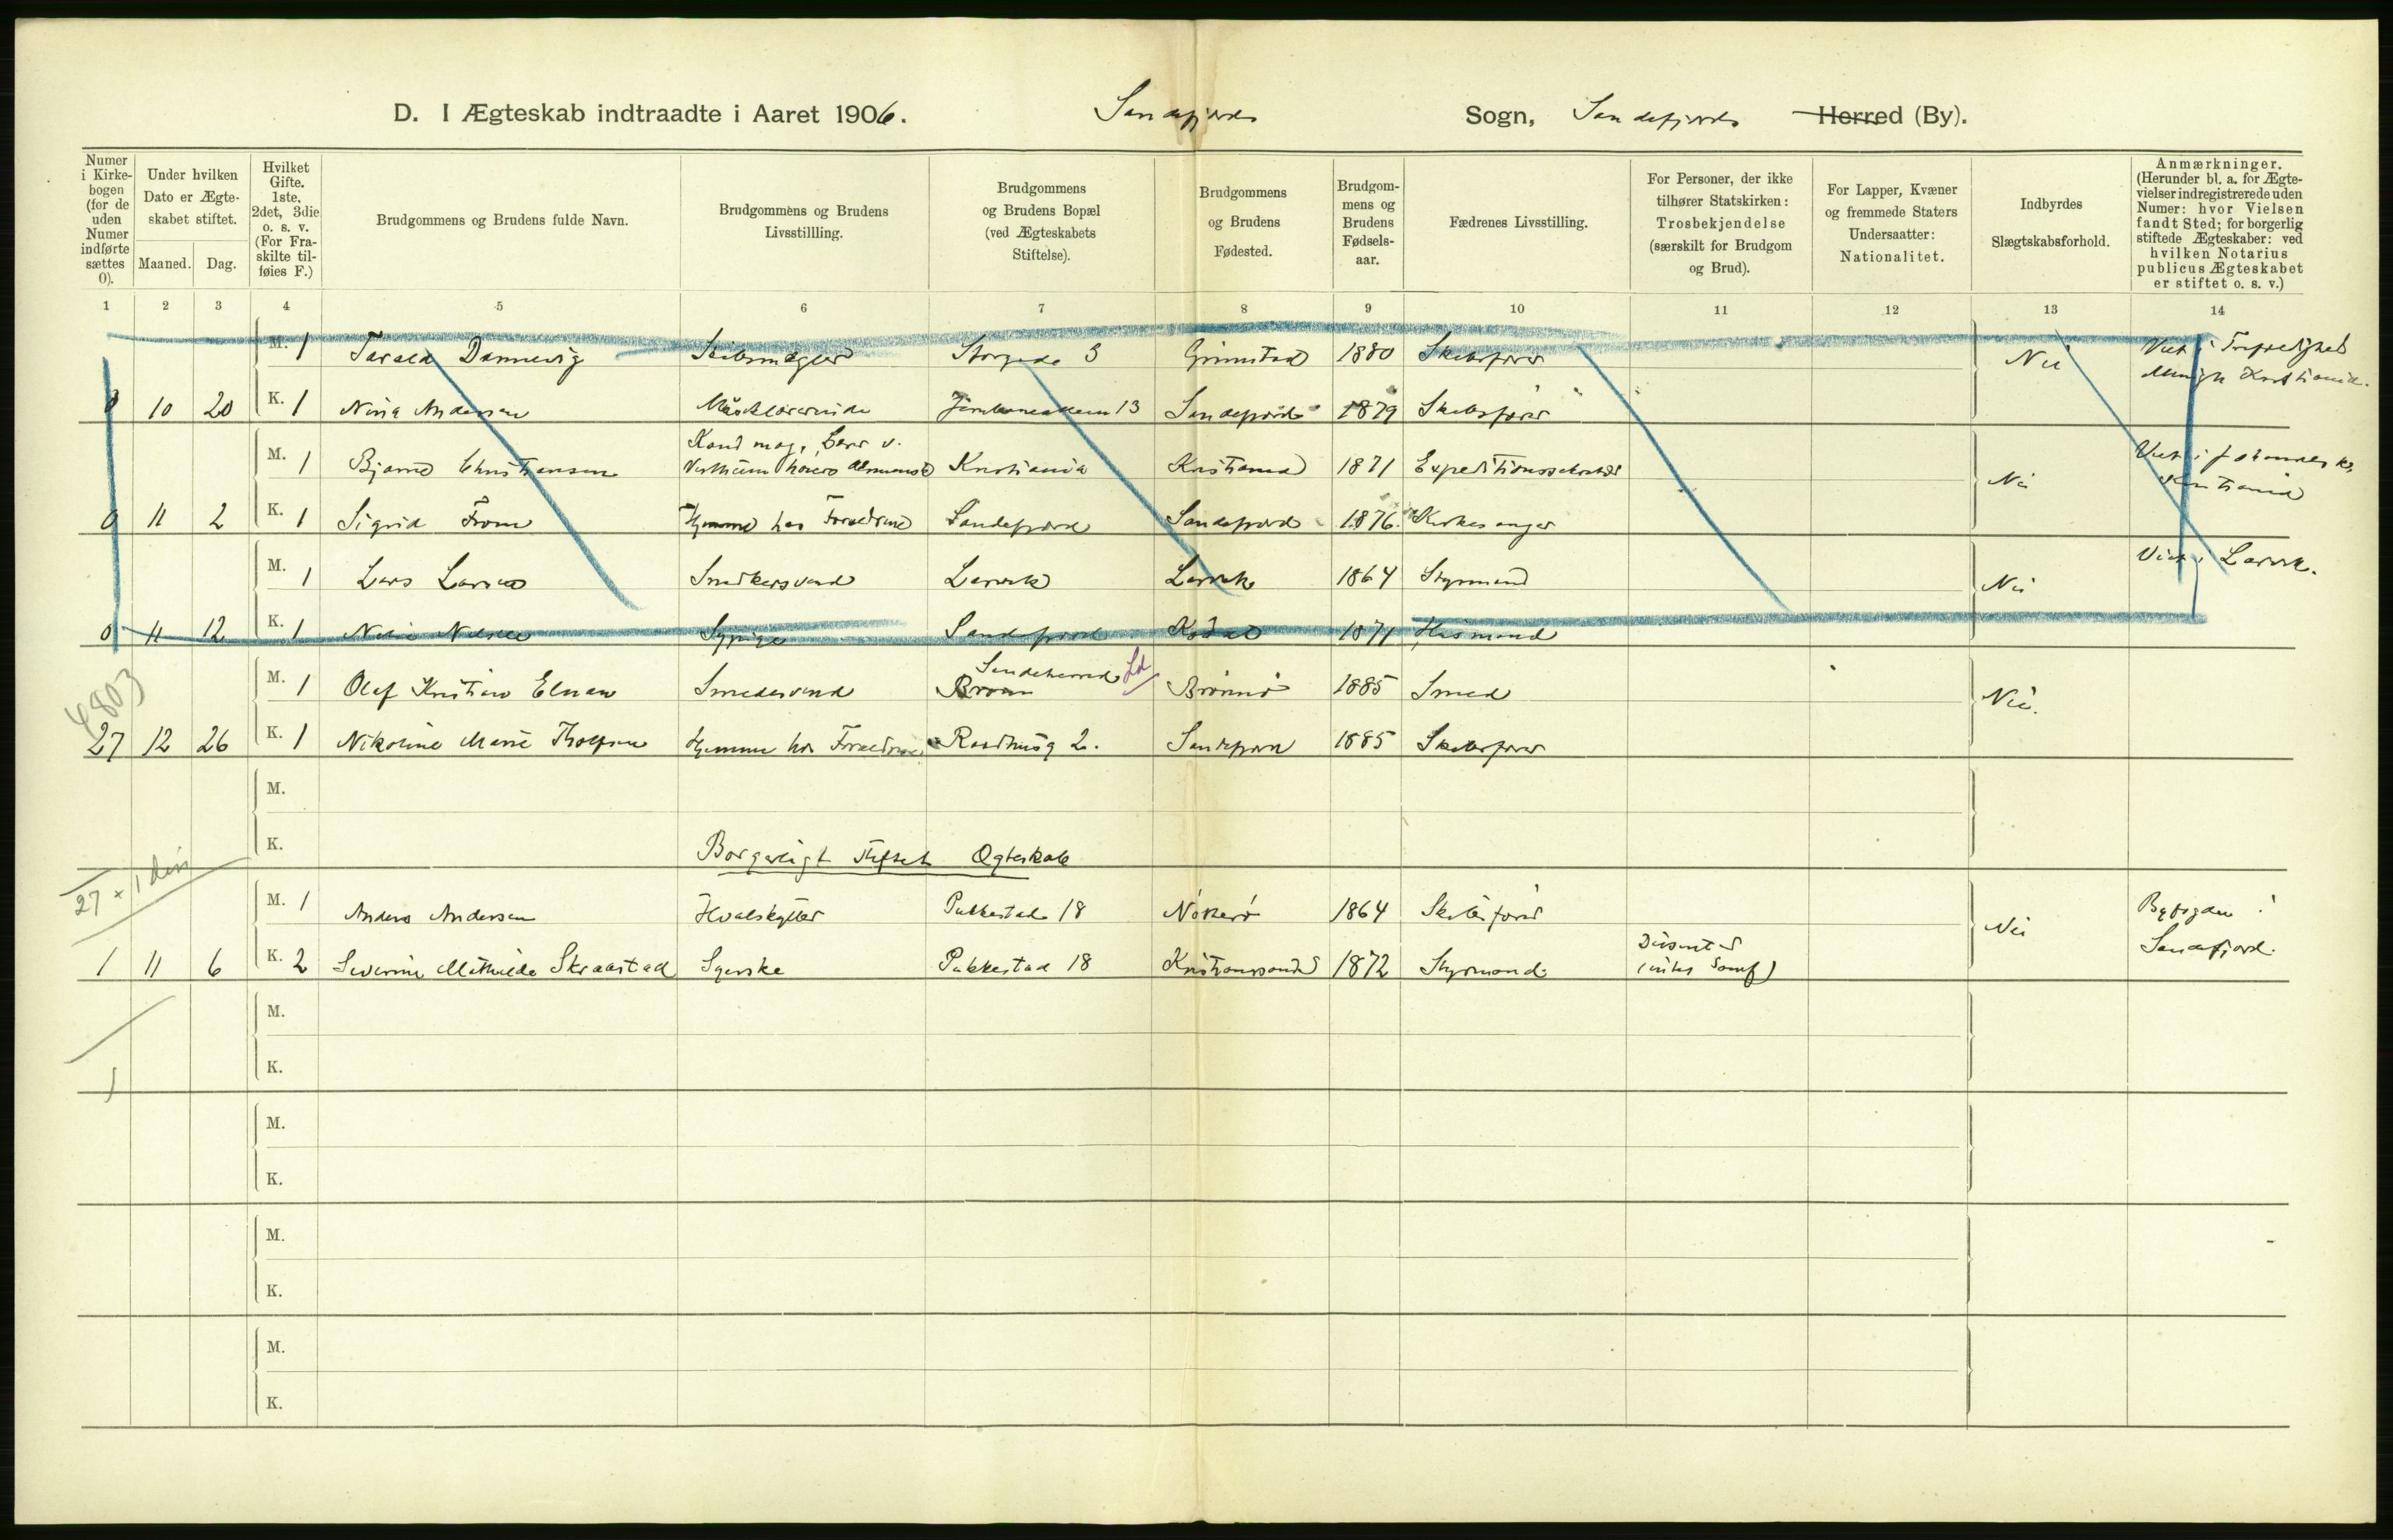 D. I Ægteskab indtraadte i Aaret 1906. Sandefjords Sogn, Sandefjords Herred (By).
Numer i Kirkebogen (for de uden Numer indførte sættes 0).
Under hvilken Dato er Ægteskabet stiftet.
Maaned. Dag.
Hvilket Gifte. 1ste, 2det, 3die o. s. v. (For Fraskilte tilføies F.)
Brudgommens og Brudens fulde Navn.
Brudgommens og Brudens Livsstillling.
Brudgommens og Brudens Bopæl (ved Ægteskabets Stiftelse).
Brudgommens og Brudens Fødested.
Brudgommens og Brudens Fødselsaar.
Fædrenes Livsstilling.
For Personer, der ikke tilhører Statskirken: Trosbekjendelse (særskilt for Brudgom og Brud).
For Lapper, Kvæner og fremmede Staters Undersaatter: Nationalitet.
Indbyrdes Slægtskabsforhold.
Anmærkninger. (Herunder bl. a. for Ægtevielser indregistrerede uden Numer: hvor Vielsen fandt Sted; for borgerlig stiftede Ægteskaber: ved hvilken Notarius publicus Ægteskabet er stiftet o. s. v.)
1 2 3 4 5 6 7 8 9 10 11 12 13 14
M. 1 Dannevig Skibsmægler Storgade 3 Grimstad 1880 Skibsfører Nei Viet i
0 10 20 K. 1 Nina Andersen 13 Sandefjord 1879 Skibsfører
Kand mag,
M. 1 Bjarne Christiansen Kristiania Kristiania 1871 Nei Viet i Kristiania
0 11 2 K. 1 Sigrid From Hjemme hos Forældrene Sandefjord Sandefjord 1876 Kirkesanger
M. 1 Lars Larsen Snedkersvend Larvik Larvik 1864 Styrmand Nei Viet i Larvik.
0 11 12 K. 1 Nilsen Sypige Sandefjord Kodal 1871
4803
Sandeherred Ld
M. 1 Olaf Kristian Elnan Smedesvend Brønnø 1885 Smed Nei.
27 12 26 K. 1 Nikoline Marie Tholfsen Hjemme hos Forældrene Raadhusg 2. Sandefjord 1885 Skibsfører
M.
K. Borgerligt stiftet Ægteskab
27 +
M. 1 Anders Andersen Hvalskytter Pukkestad 18 Nøtterø 1864 Skibsfører Nei Byfogden i Sandefjord.
1 11 6 K. 2 Severine Mathilde Skraastad Syerske Pukkestad 18 Kristianssand S 1872 Styrmand Dissenter
M.
K.
1
M.
K.
M.
K.
M.
K.